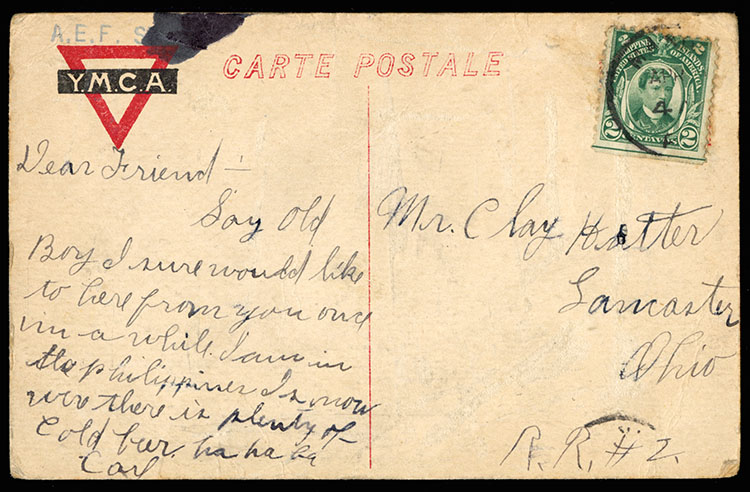 A.E.F. S
Y.M.C.A.
CARTE POSTALE
PHILIPPINE ISLANDS
UNITED STATES OF AMERICA
2 2
4
2 CENTAVOS 2
Dear Friend —
Say Old
Boy I sure would like
to here from you once
in a while. I am in
the philippines Is. now
were there is plenty of
Cold beer. ha ha ha
Carl
Mr. Clay Hatter
Lancaster
Ohio
R.R. #2.